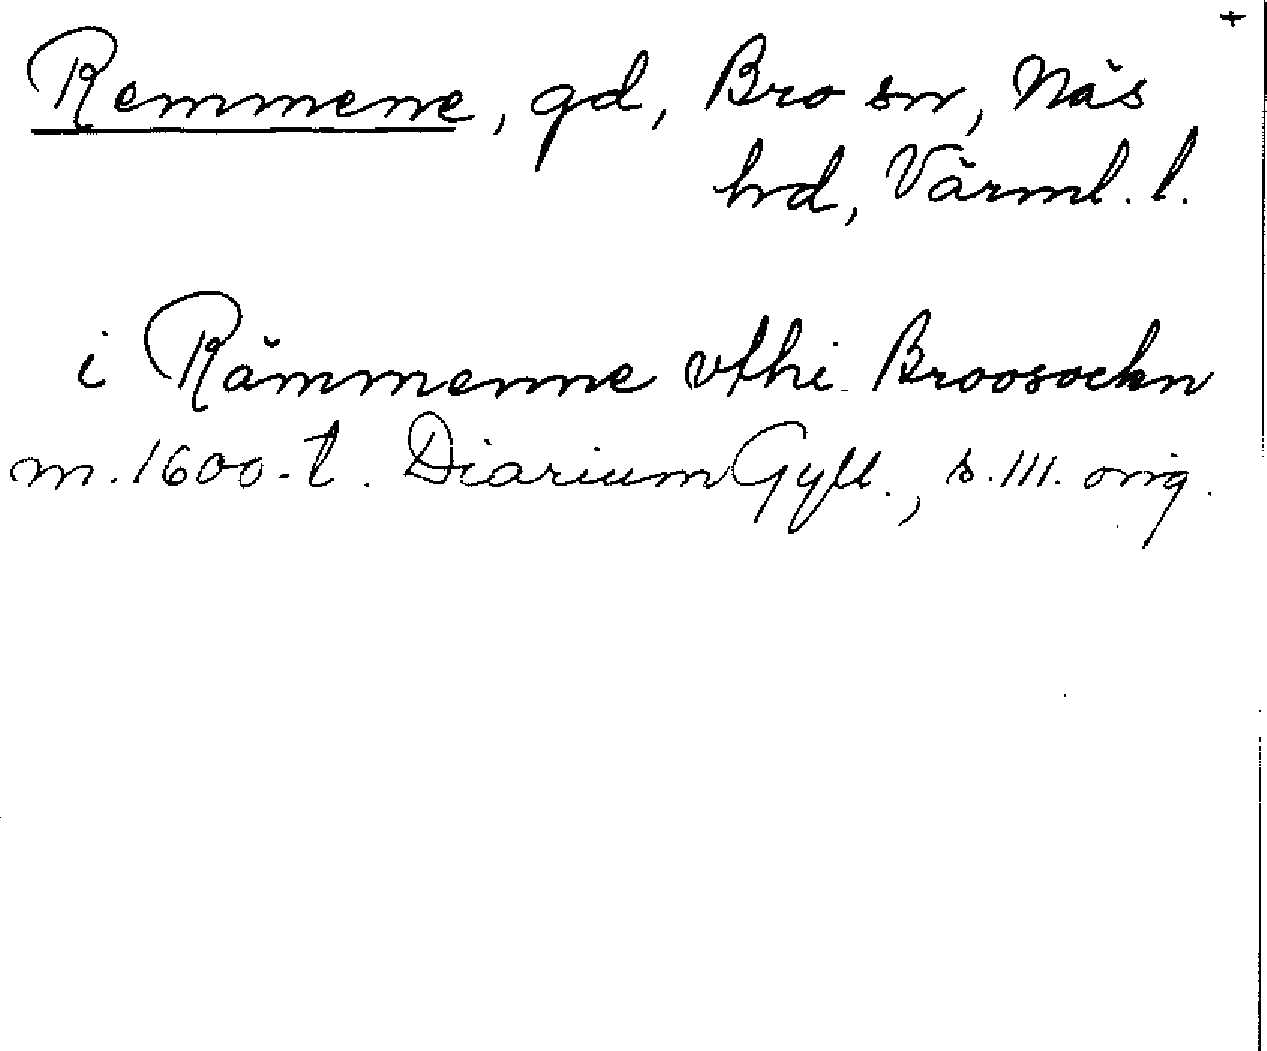 +
Remmene, gd, Bro sn, Näs
hd, Värml. l.
i Rämmenne vthi Broosockn
m. 1600-t. Diarium Gyll., s. 111. orig.